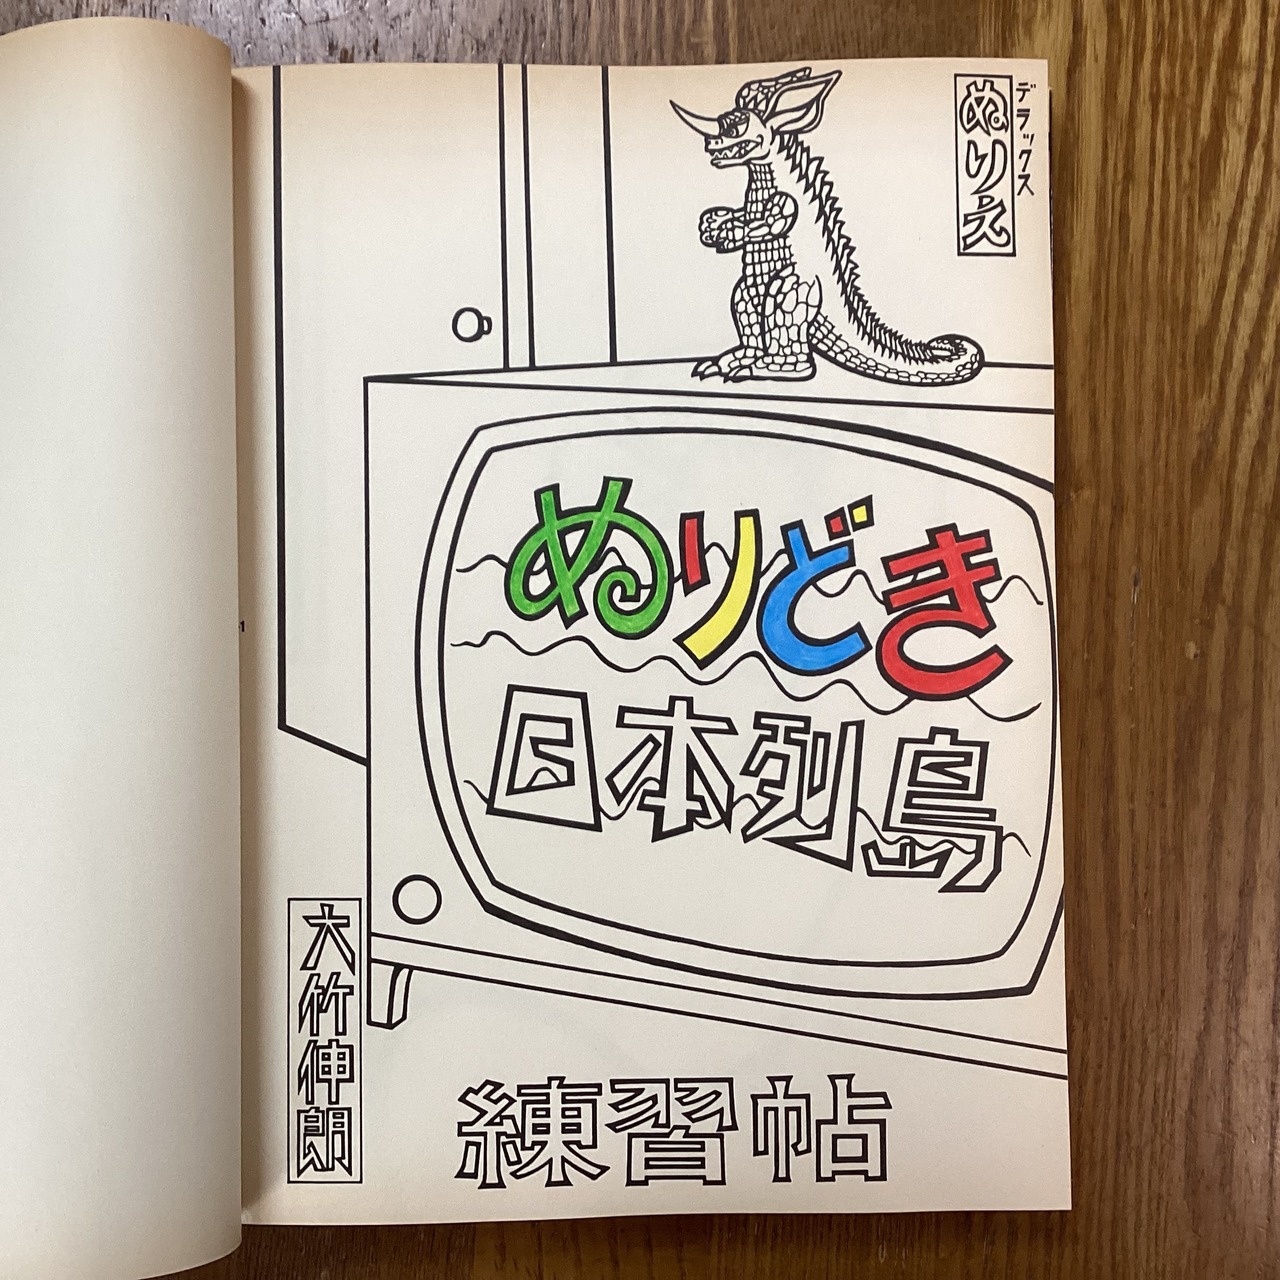 デラックス
ぬりえ
ぬりどき
日本列島
大竹伸朗
練習帖
1